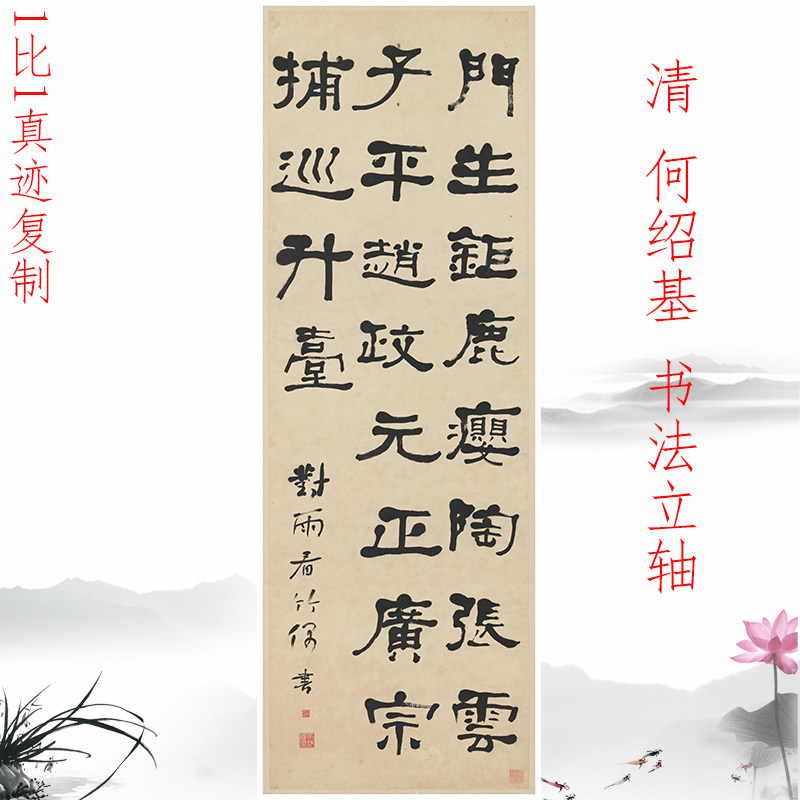 清 何绍基 书法立轴
門生鉅鹿癭陶張雲
子平趙政元正廣宗
捕巡升臺
對雨看竹偶書
1比1真迹复制